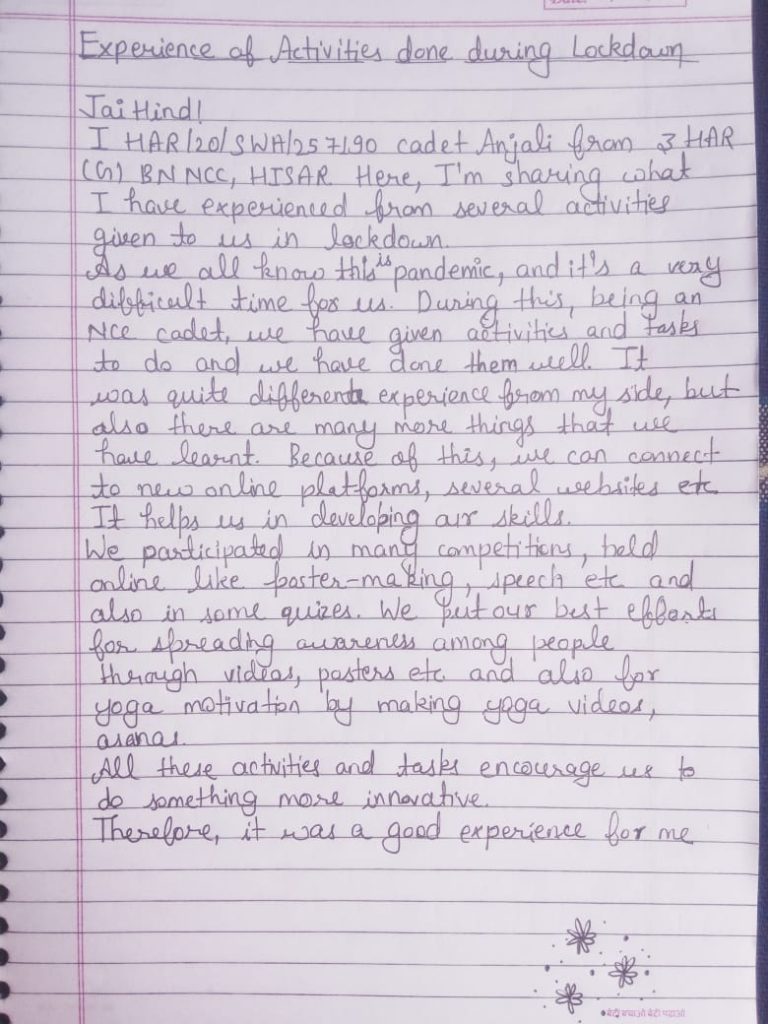 Experience of Activities done during Lockdown
Jai Hind!
I HAR/20/SWA/257190 cadet Anjali from 3 HAR
(G) BN NCC, HISAR Here, I'm sharing what
I have experienced from several activities
given to us in lockdown.
As we all know this is pandemic, and it's a very
difficult time for us. During this, being an
NCC cadet, we have given activities and tasks
to do and we have done them well. It
was quite different experience from my side, but
also there are many more things that we
have learnt. Because of this, we can connect
to new online platforms, several websites etc
It helps us in developing our skills.
We participated in many competitions, held
online like poster-making, speech etc and
also in some quizes. We put our best efforts
for spreading awareness among people
through videos, posters etc and also for
yoga motivation by making yoga videos,
asanas.
All these activities and tasks encourage us to
do something more innovative.
Therefore, it was a good experience for me
बेटी बचाओ बेटी पढ़ाओ